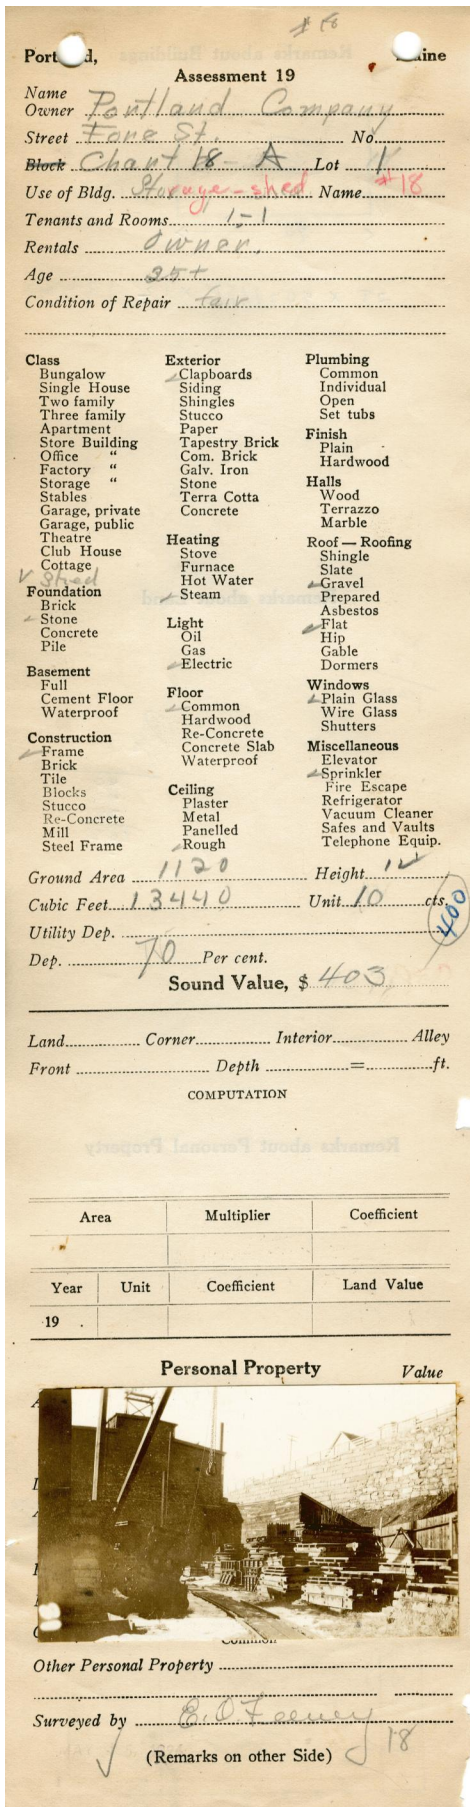 # 18
Portland, Maine
Assessment 19
Name
Owner Portland Company
Street Fore St. No.
Block Chart 18-A Lot 1
Use of Bldg. Storage-shed Name #18
Tenants and Rooms 1-1
Rentals Owner.
Age 35+
Condition of Repair fair
Class
Bungalow
Single House
Two family
Three family
Apartment
Store Building
Office "
Factory "
Storage "
Stables
Garage, private
Garage, public
Theatre
Club House
Cottage
✓ Shed
Foundation
Brick
✓ Stone
Concrete
Pile
Basement
Full
Cement Floor
Waterproof
Construction
✓ Frame
Brick
Tile
Blocks
Stucco
Re-Concrete
Mill
Steel Frame
Exterior
✓ Clapboards
Siding
Shingles
Stucco
Paper
Tapestry Brick
Com. Brick
Galv. Iron
Stone
Terra Cotta
Concrete
Heating
Stove
Furnace
Hot Water
✓ Steam
Light
Oil
Gas
✓ Electric
Floor
✓ Common
Hardwood
Re-Concrete
Concrete Slab
Waterproof
Ceiling
Plaster
Metal
Panelled
✓ Rough
Plumbing
Common
Individual
Open
Set tubs
Finish
Plain
Hardwood
Halls
Wood
Terrazzo
Marble
Roof — Roofing
Shingle
Slate
✓ Gravel
Prepared
Asbestos
✓ Flat
Hip
Gable
Dormers
Windows
✓ Plain Glass
Wire Glass
Shutters
Miscellaneous
Elevator
✓ Sprinkler
Fire Escape
Refrigerator
Vacuum Cleaner
Safes and Vaults
Telephone Equip.
Ground Area 1120 Height 12
Cubic Feet 13440 Unit 10 cts.
400
Utility Dep.
Dep. 70 Per cent.
Sound Value, $ 403
Land Corner Interior Alley
Front Depth = ft.
COMPUTATION
Area Multiplier Coefficient
Year Unit Coefficient Land Value
19
Personal Property Value
Common
Other Personal Property
Surveyed by E.O Feeney
18
(Remarks on other Side)